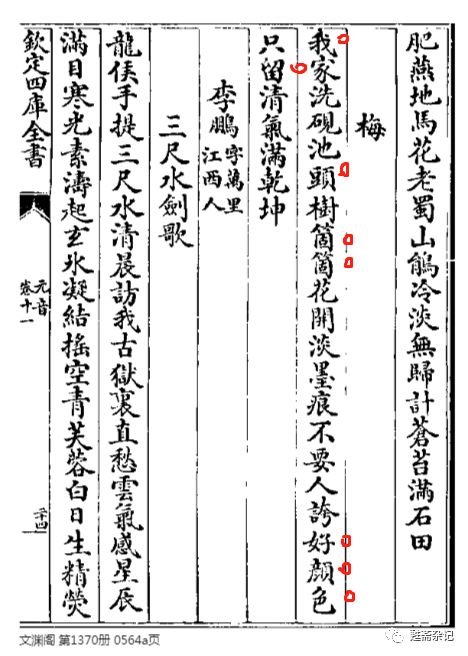 肥燕地馬花老蜀山鵑冷淡無歸計蒼苔滿石田
梅
我家洗硯池頭樹箇箇花開淡墨痕不要人誇好顔色
只留清氣滿乾坤
李鵬字萬里
江西人
三尺水劍歌
龍侯手提三尺水清晨訪我古獄裏直愁雲氣感星辰
滿目寒光素濤起玄氷凝結搖空青芙蓉白日生精熒
欽定四庫全書
元音
卷十一
二十四
文渊阁 第1370册 0564a页
甦斋杂记